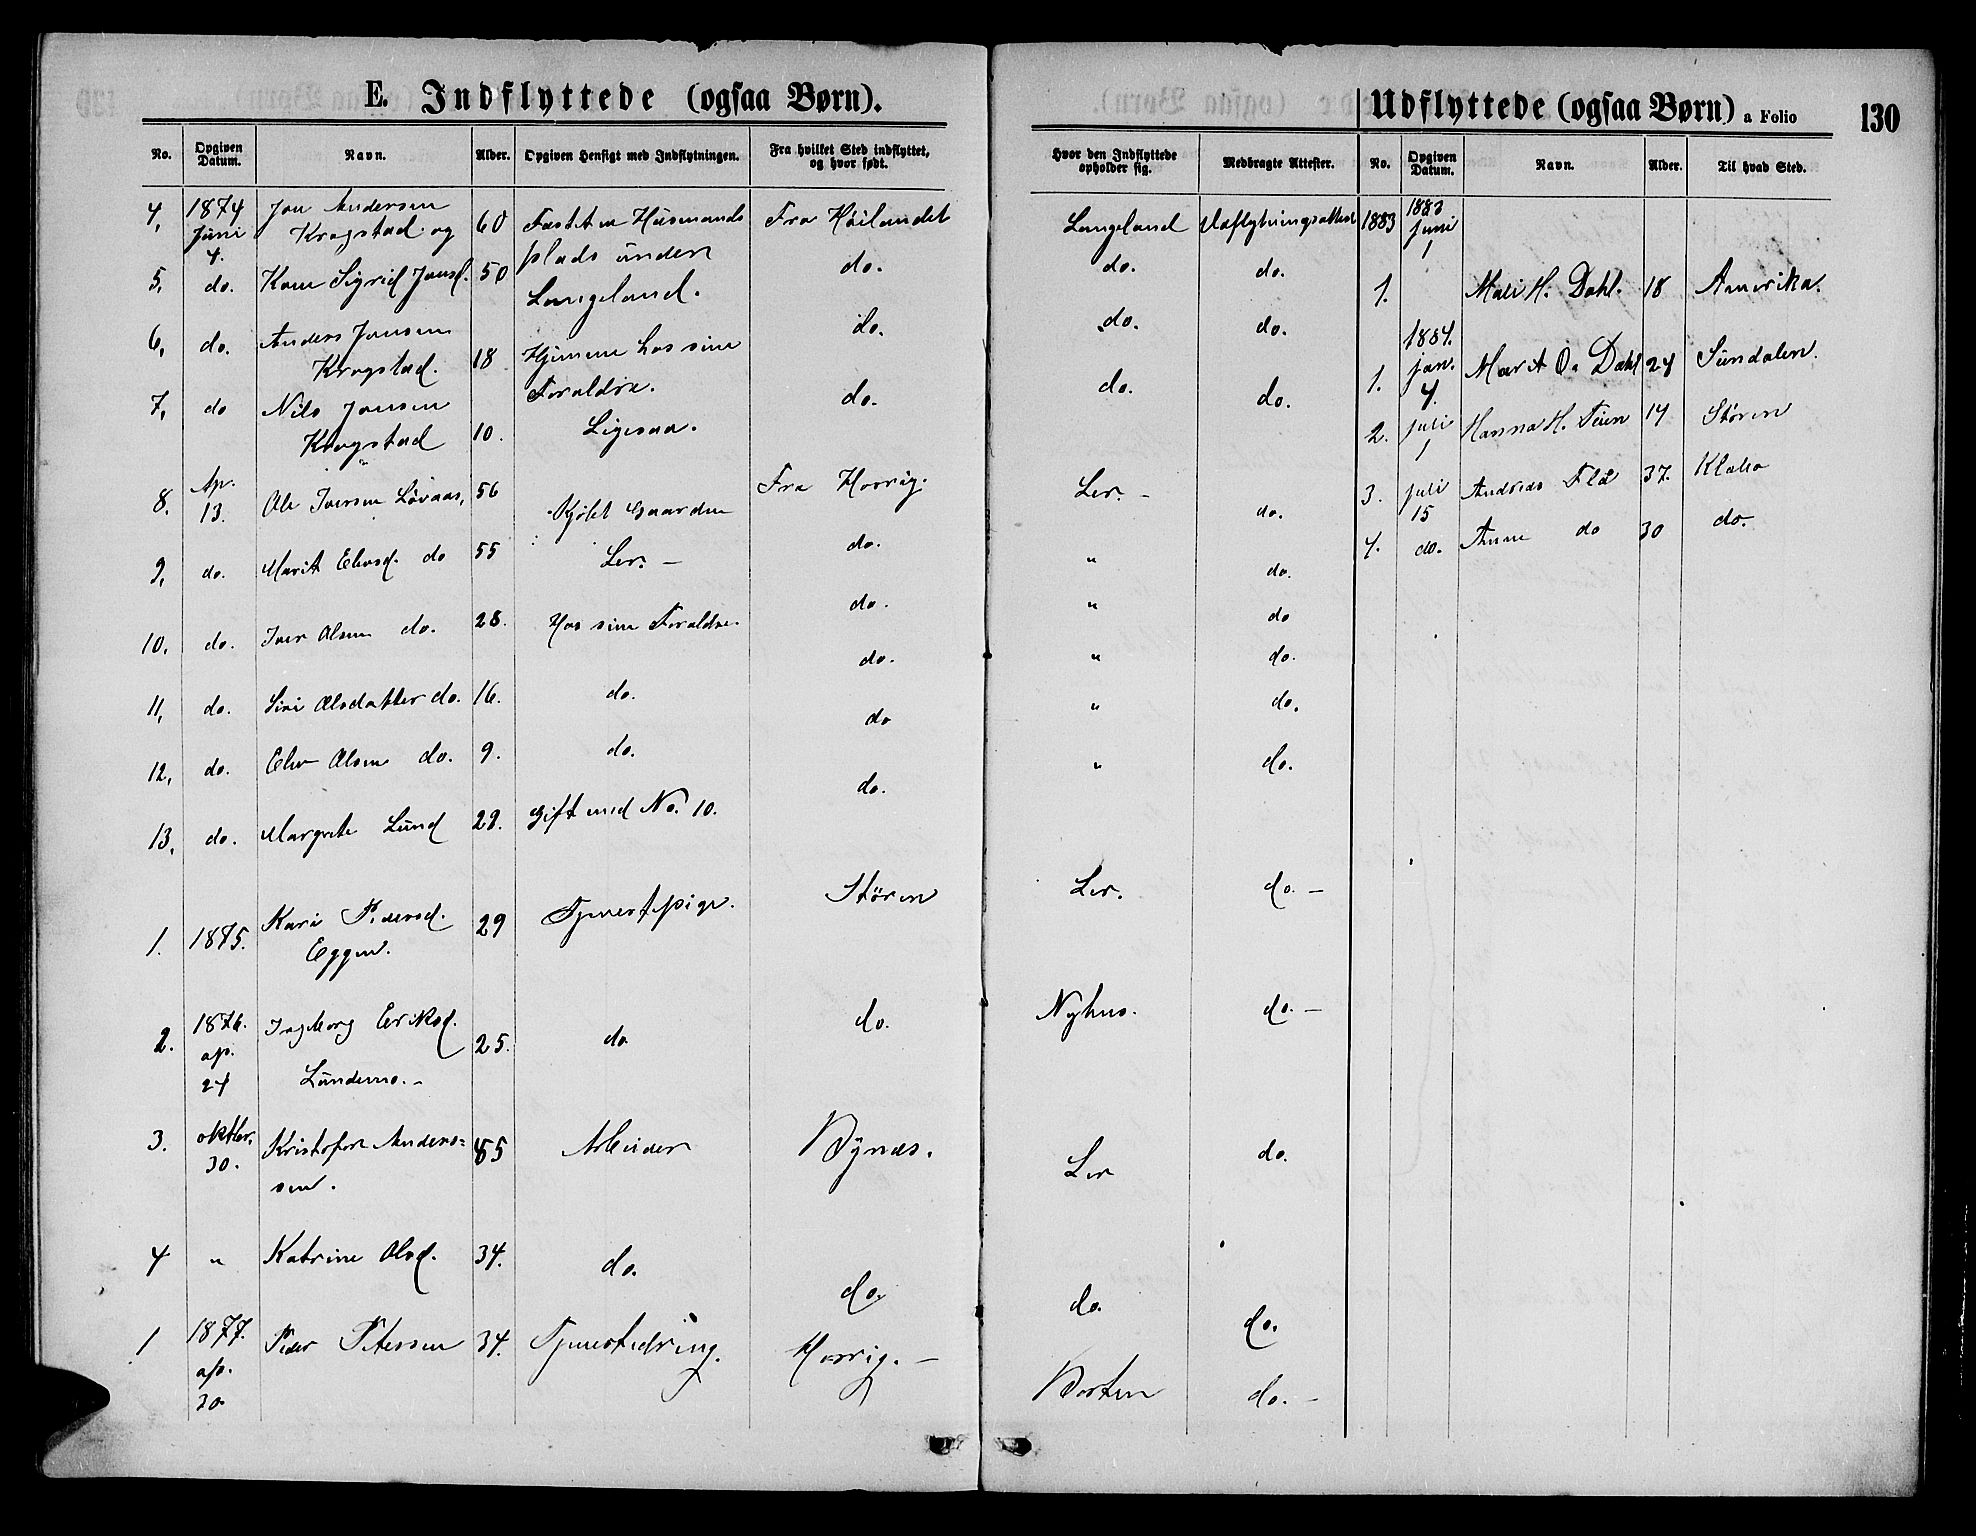 E. Indflyttede (ogsaa Børn).
No. Opgiven Datum. Navn. Alder. Opgiven Hensigt med Indflytningen. Fra hvilket Sted indflyttet, og hvor født. Hvor den Indflyttede opholder sig. Medbragte Attester.
4, 1874 Juni 4. Jon Andersen Krogstad og 60 Fæstet en Husmands Fra Høilandet Langeland Udflytningsattest
5, do. Kone Sigrid Jonsd. 50 plads under Langeland. do. do. do.
6, do. Anders Jonsen Krogstad. 18 Hjemme hos sine Foraldre. do. do. do.
7, do Nils Jonsen Krogstad 10. Ligesaa. do. do. do.
8. Ap. 13. Ole Iversen Løvaas, 56 Kjøbt Gaarden Fra Horrig. Ler. – do.
9, do. Marit Elevsd. do 55 Ler. – do. " do.
10, do. Iver Olsen do. 28. Hos sine Foraldre. do. " do
11, do. Siri Olsdatter do. 16. do. do. " do.
12, do. Elev Olsen do. 9. do. do " do.
13, do. Margrete Lund 29. Gift med No. 10. do. " do.
1. 1875. Kari Pedersd. Eggen. 29 Tjenestepige. Støren Ler. do. –
2. 1876. ap. 24 Ingeborg Eriksd. Lundemo. – 25. do do. Nyhus. do. –
3. oktbr. 30. Kristofer Anders= sen. 85 Arbeider Bynæs. Ler do.
4 " Katrine Olsd. 34. do. do. do. do.
1 1877. ap. 30 Peder Petersen 34. Tjenestedring. Horrig. – Borten do. –
Udflyttede (ogsaa Børn) a Folio 130
No. Opgiven Datum. Navn. Alder. Til hvad Sted.
1883 1883 Juni 1
1. Mali H. Dahl. 18 Amerika.
1. 1884. jan. 4. Marit O. Dahl 24 Sundalen.
2. juli 1 Hanna H. Teien 14 Støren
3. juli 15 Andreas Flå 37. Klæbo
4. do. Anne do 30 do.